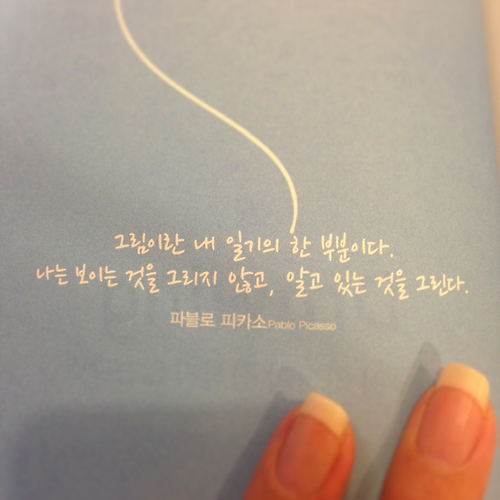 그림이란 내 일기의 한 부분이다.
나는 보이는 것을 그리지 않고, 알고 있는 것을 그린다.
파블로 피카소 Pablo Picasso